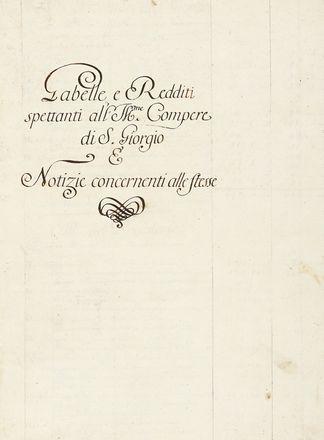 Gabelle e Redditi
spettanti all' Ill.me Compere
di S. Giorgio
E
Notizie concernenti alle stesse